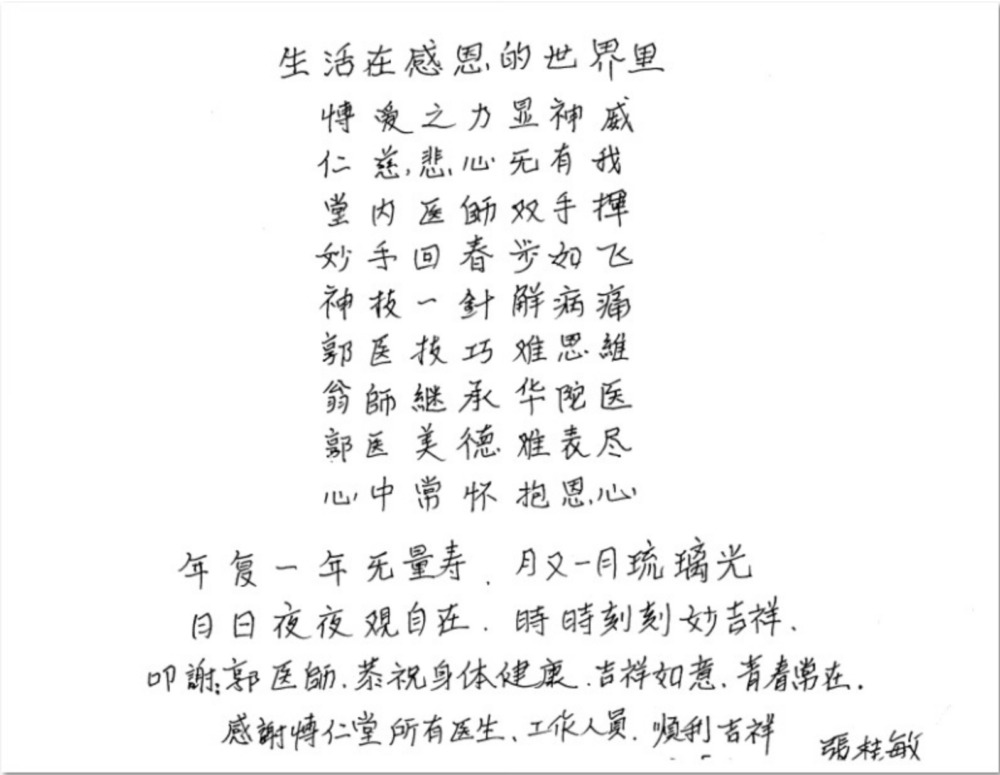 生活在感恩的世界里
愽爱之力显神威
仁慈悲心无有我
堂内医師双手揮
妙手回春步如飞
神技一針解病痛
郭医技巧难思維
翁師継承华陀医
郭医美德难表尽
心中常怀抱恩心
年复一年无量寿、月又一月琉璃光
日日夜夜観自在.時時刻刻妙吉祥.
叩謝:郭医師.恭祝身体健康.吉祥如意.青春常在.
感謝愽仁堂所有医生、工作人員.順利吉祥
張桂敏